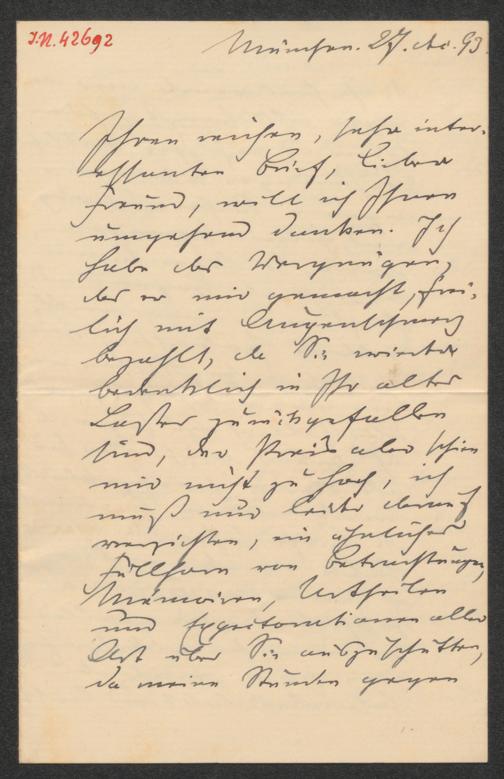 I.N. 42692
München. 27. Dec. 93.
Ihren reichen, sehr inter-
essanten Brief, lieber
Freund, will ich Ihnen
umgehend danken. Ich
habe das Vergnügen,
das er mir gemacht, frei-
lich mit Augenschmerz
bezahlt, da Sie wieder
bedenklich in Ihr altes
Laster zurückgefallen
sind, der Preis aber schien
mir nicht zu hoch, ich
muß nur leider darauf
verzichten, ein ähnliches
Füllhorn von Betrachtungen,
Memoiren, Urtheilen
und Expectorationen aller
Art über Sie auszuschütten,
da meine Stunden gegen